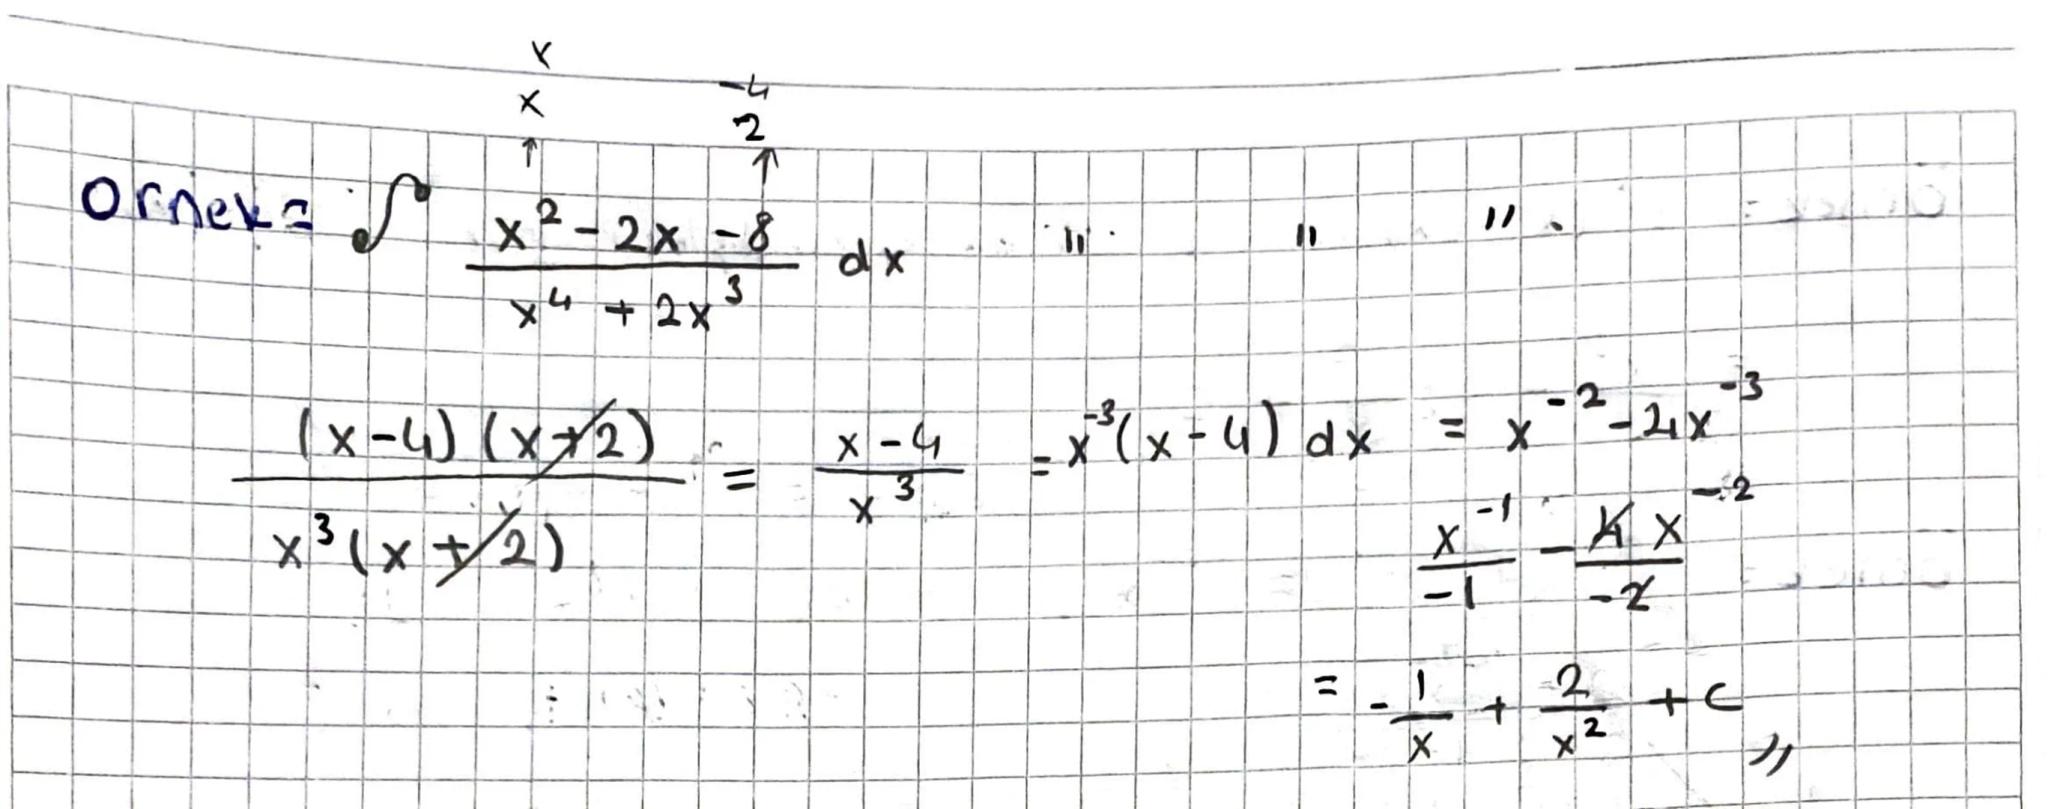 x
x -4
2
↑ ↑
Ornek = ∫ (x² - 2x - 8) / (x⁴ + 2x³) dx " " " .
(x-4)(x+2) / x³(x+2) = (x-4) / x³ = x⁻³(x-4) dx = x⁻² - 4x⁻³
x⁻¹ / -1 - 4x⁻² / -2
= - 1/x + 2/x² + c //